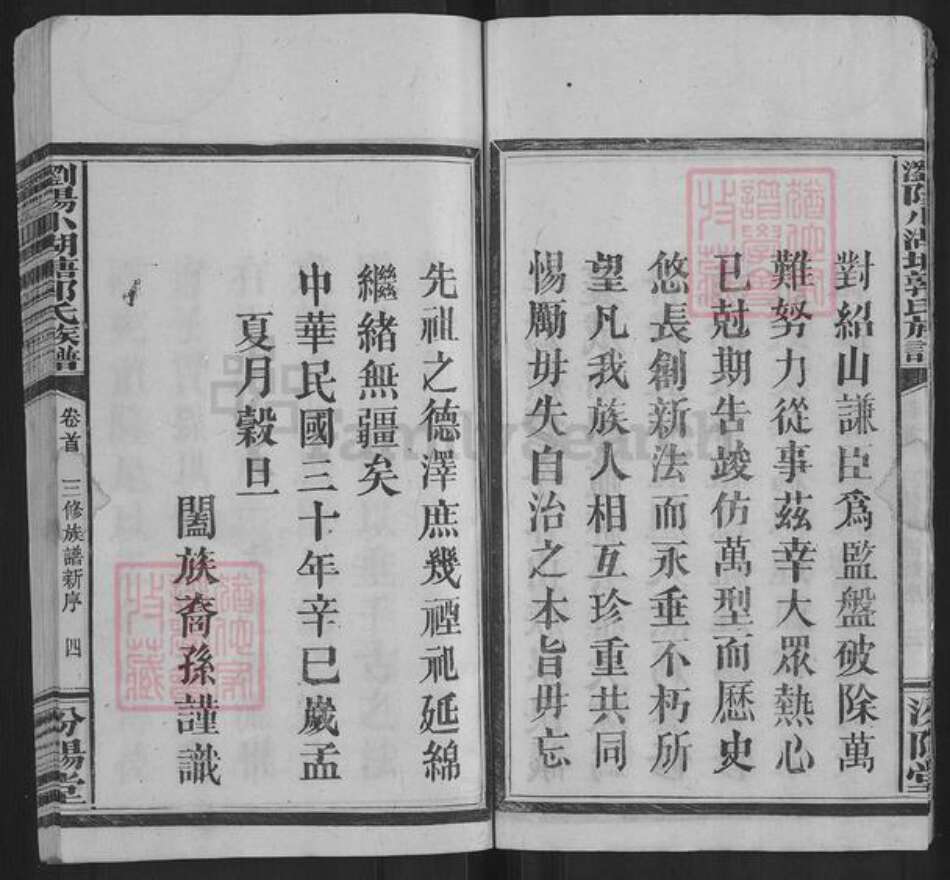 對紹山謙臣爲監盤破除萬
難努力從事茲幸大眾熱心
已尅期告竣仿萬型而歷史
悠長創新法而永垂不朽所
望凡我族人相互珍重共同
惕勵毋失自治之本旨毋忘
先祖之德澤庶幾禋祀延綿
繼緒無疆矣
中華民國三十年辛巳歲孟
夏月穀旦
闔族裔孫謹識
瀏陽小湖塘郭氏族譜
卷首
三修族譜新序
四
汾陽堂
FamilySearch